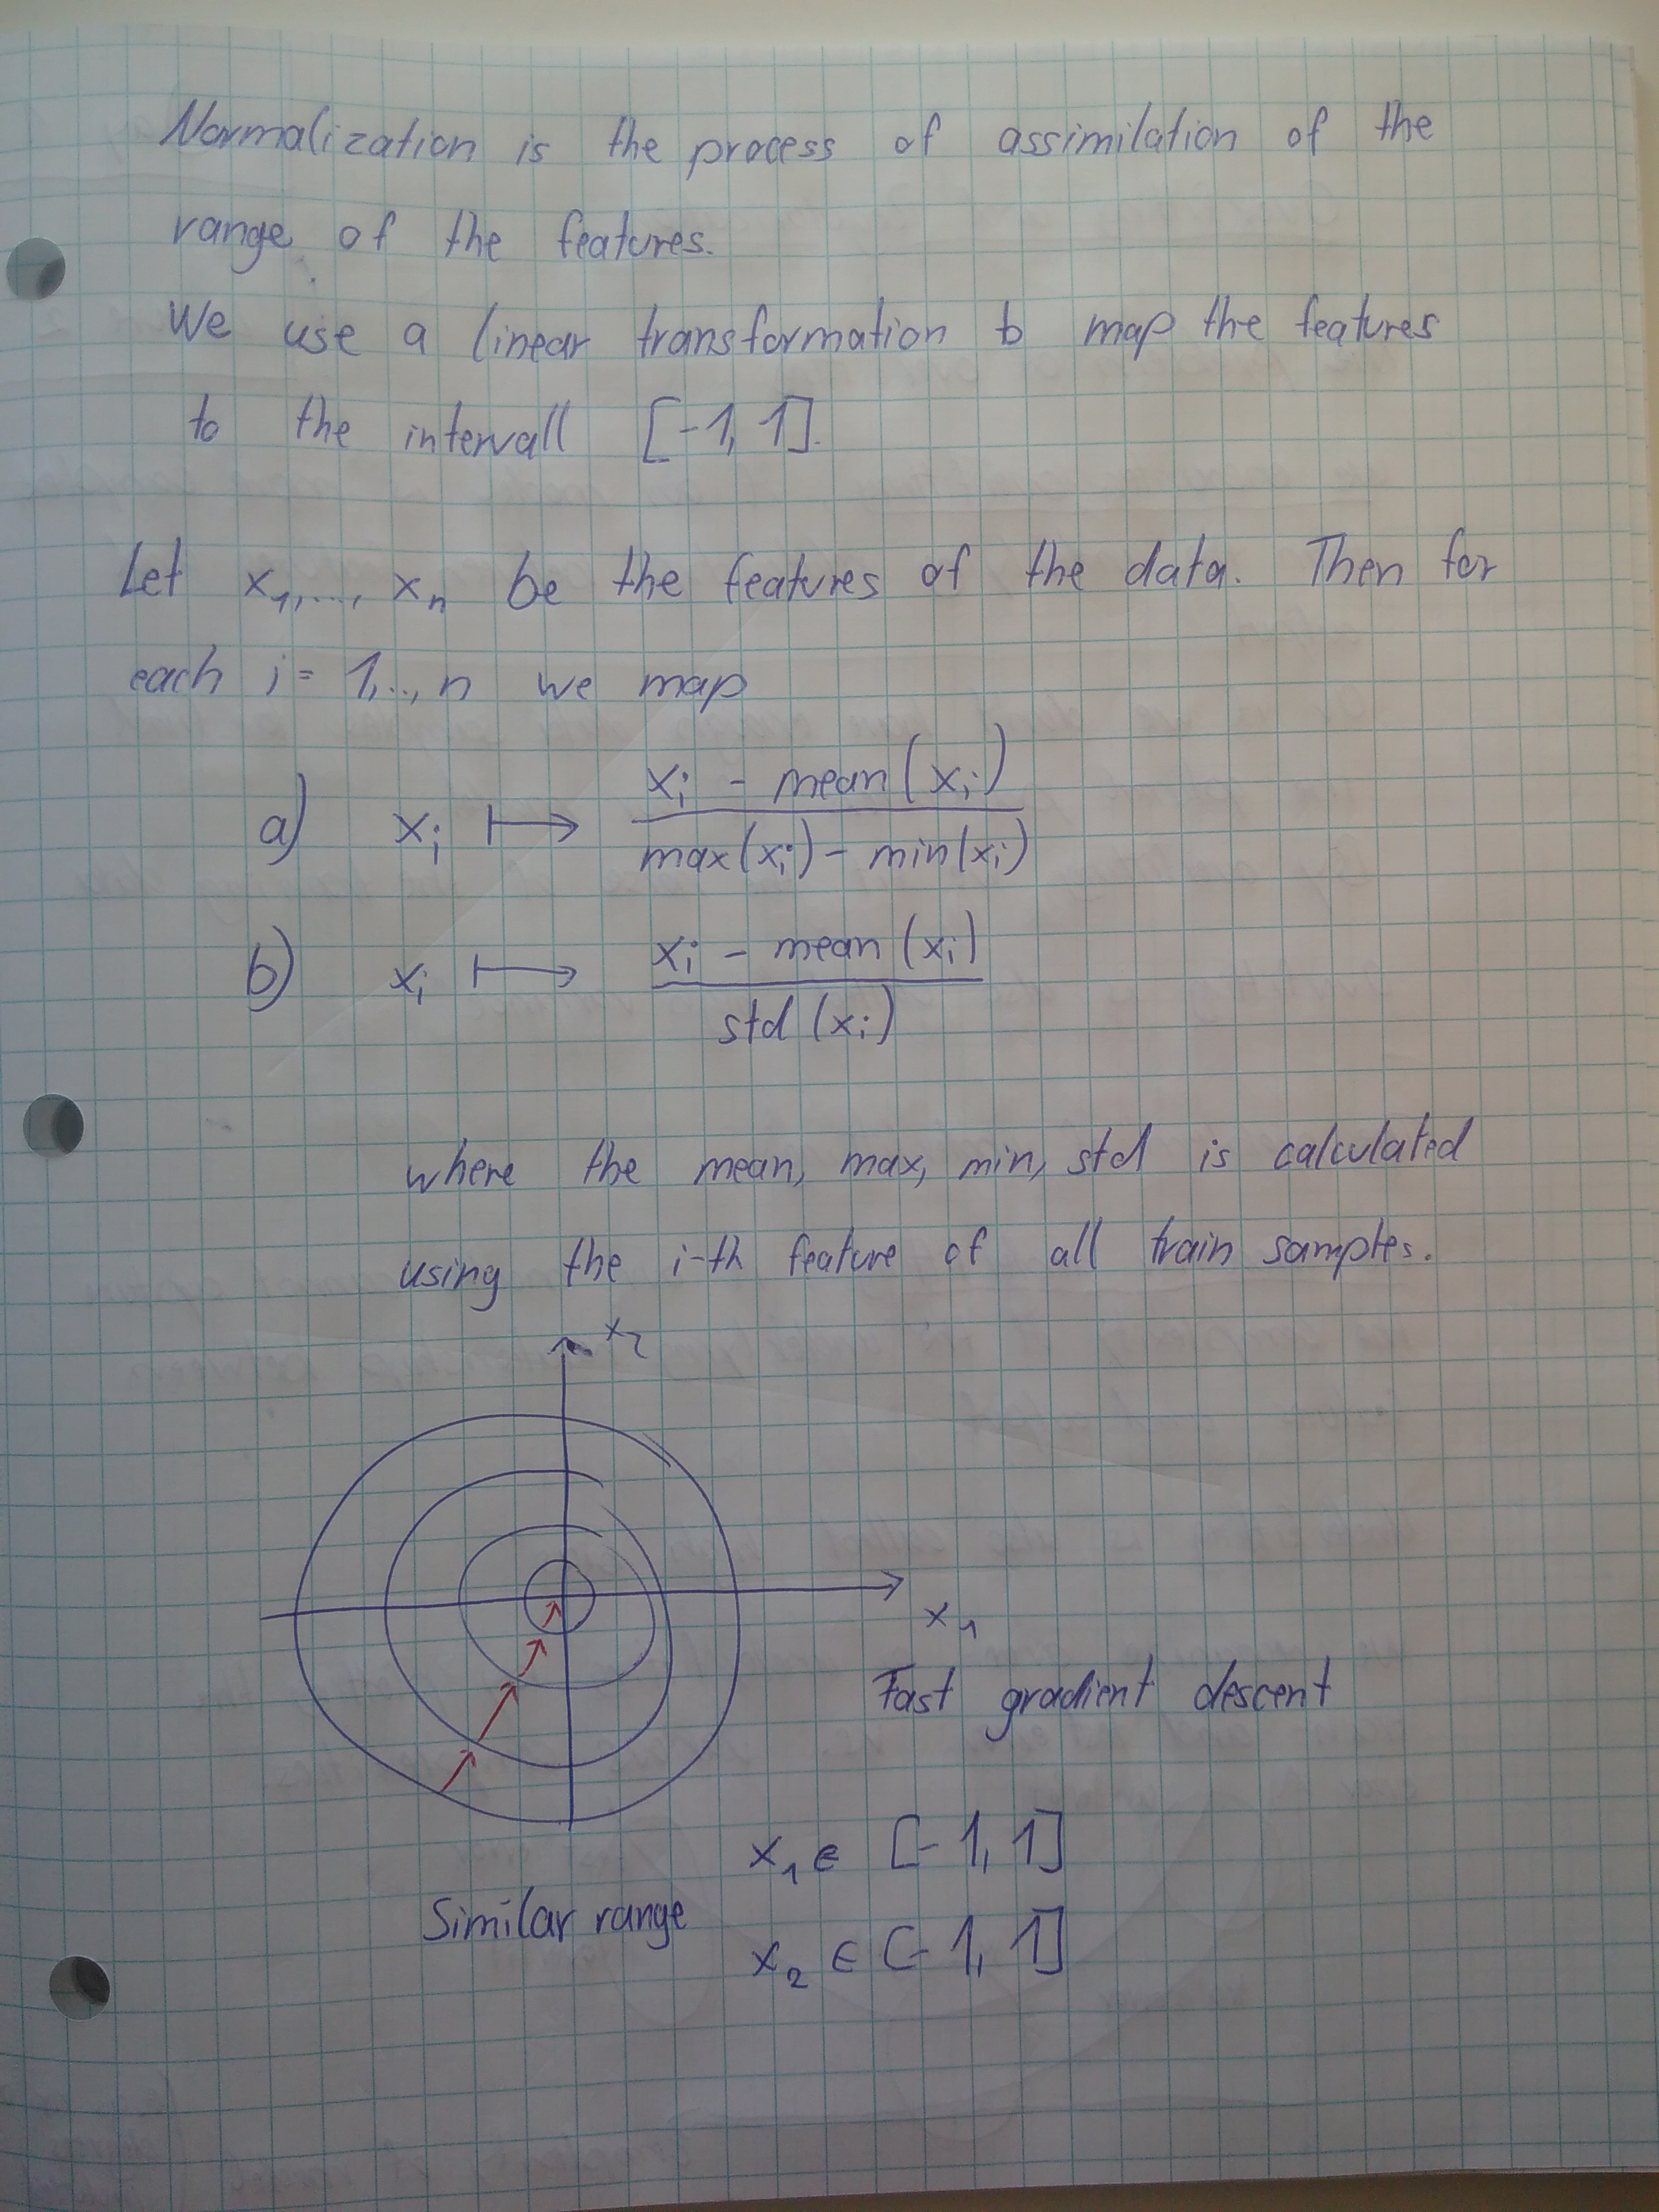 Normalization is the process of assimilation of the
range of the features.
We use a linear transformation to map the features
to the intervall [-1, 1].
Let x₁,..., xₙ be the features of the data. Then for
each i = 1,.., n we map
a) xᵢ ↦ (xᵢ - mean(xᵢ)) / (max(xᵢ) - min(xᵢ))
b) xᵢ ↦ (xᵢ - mean(xᵢ)) / std(xᵢ)
where the mean, max, min, std is calculated
using the i-th feature of all train samples.
x₂
x₁
Fast gradient descent
Similar range
x₁ ∈ [-1, 1]
x₂ ∈ [-1, 1]